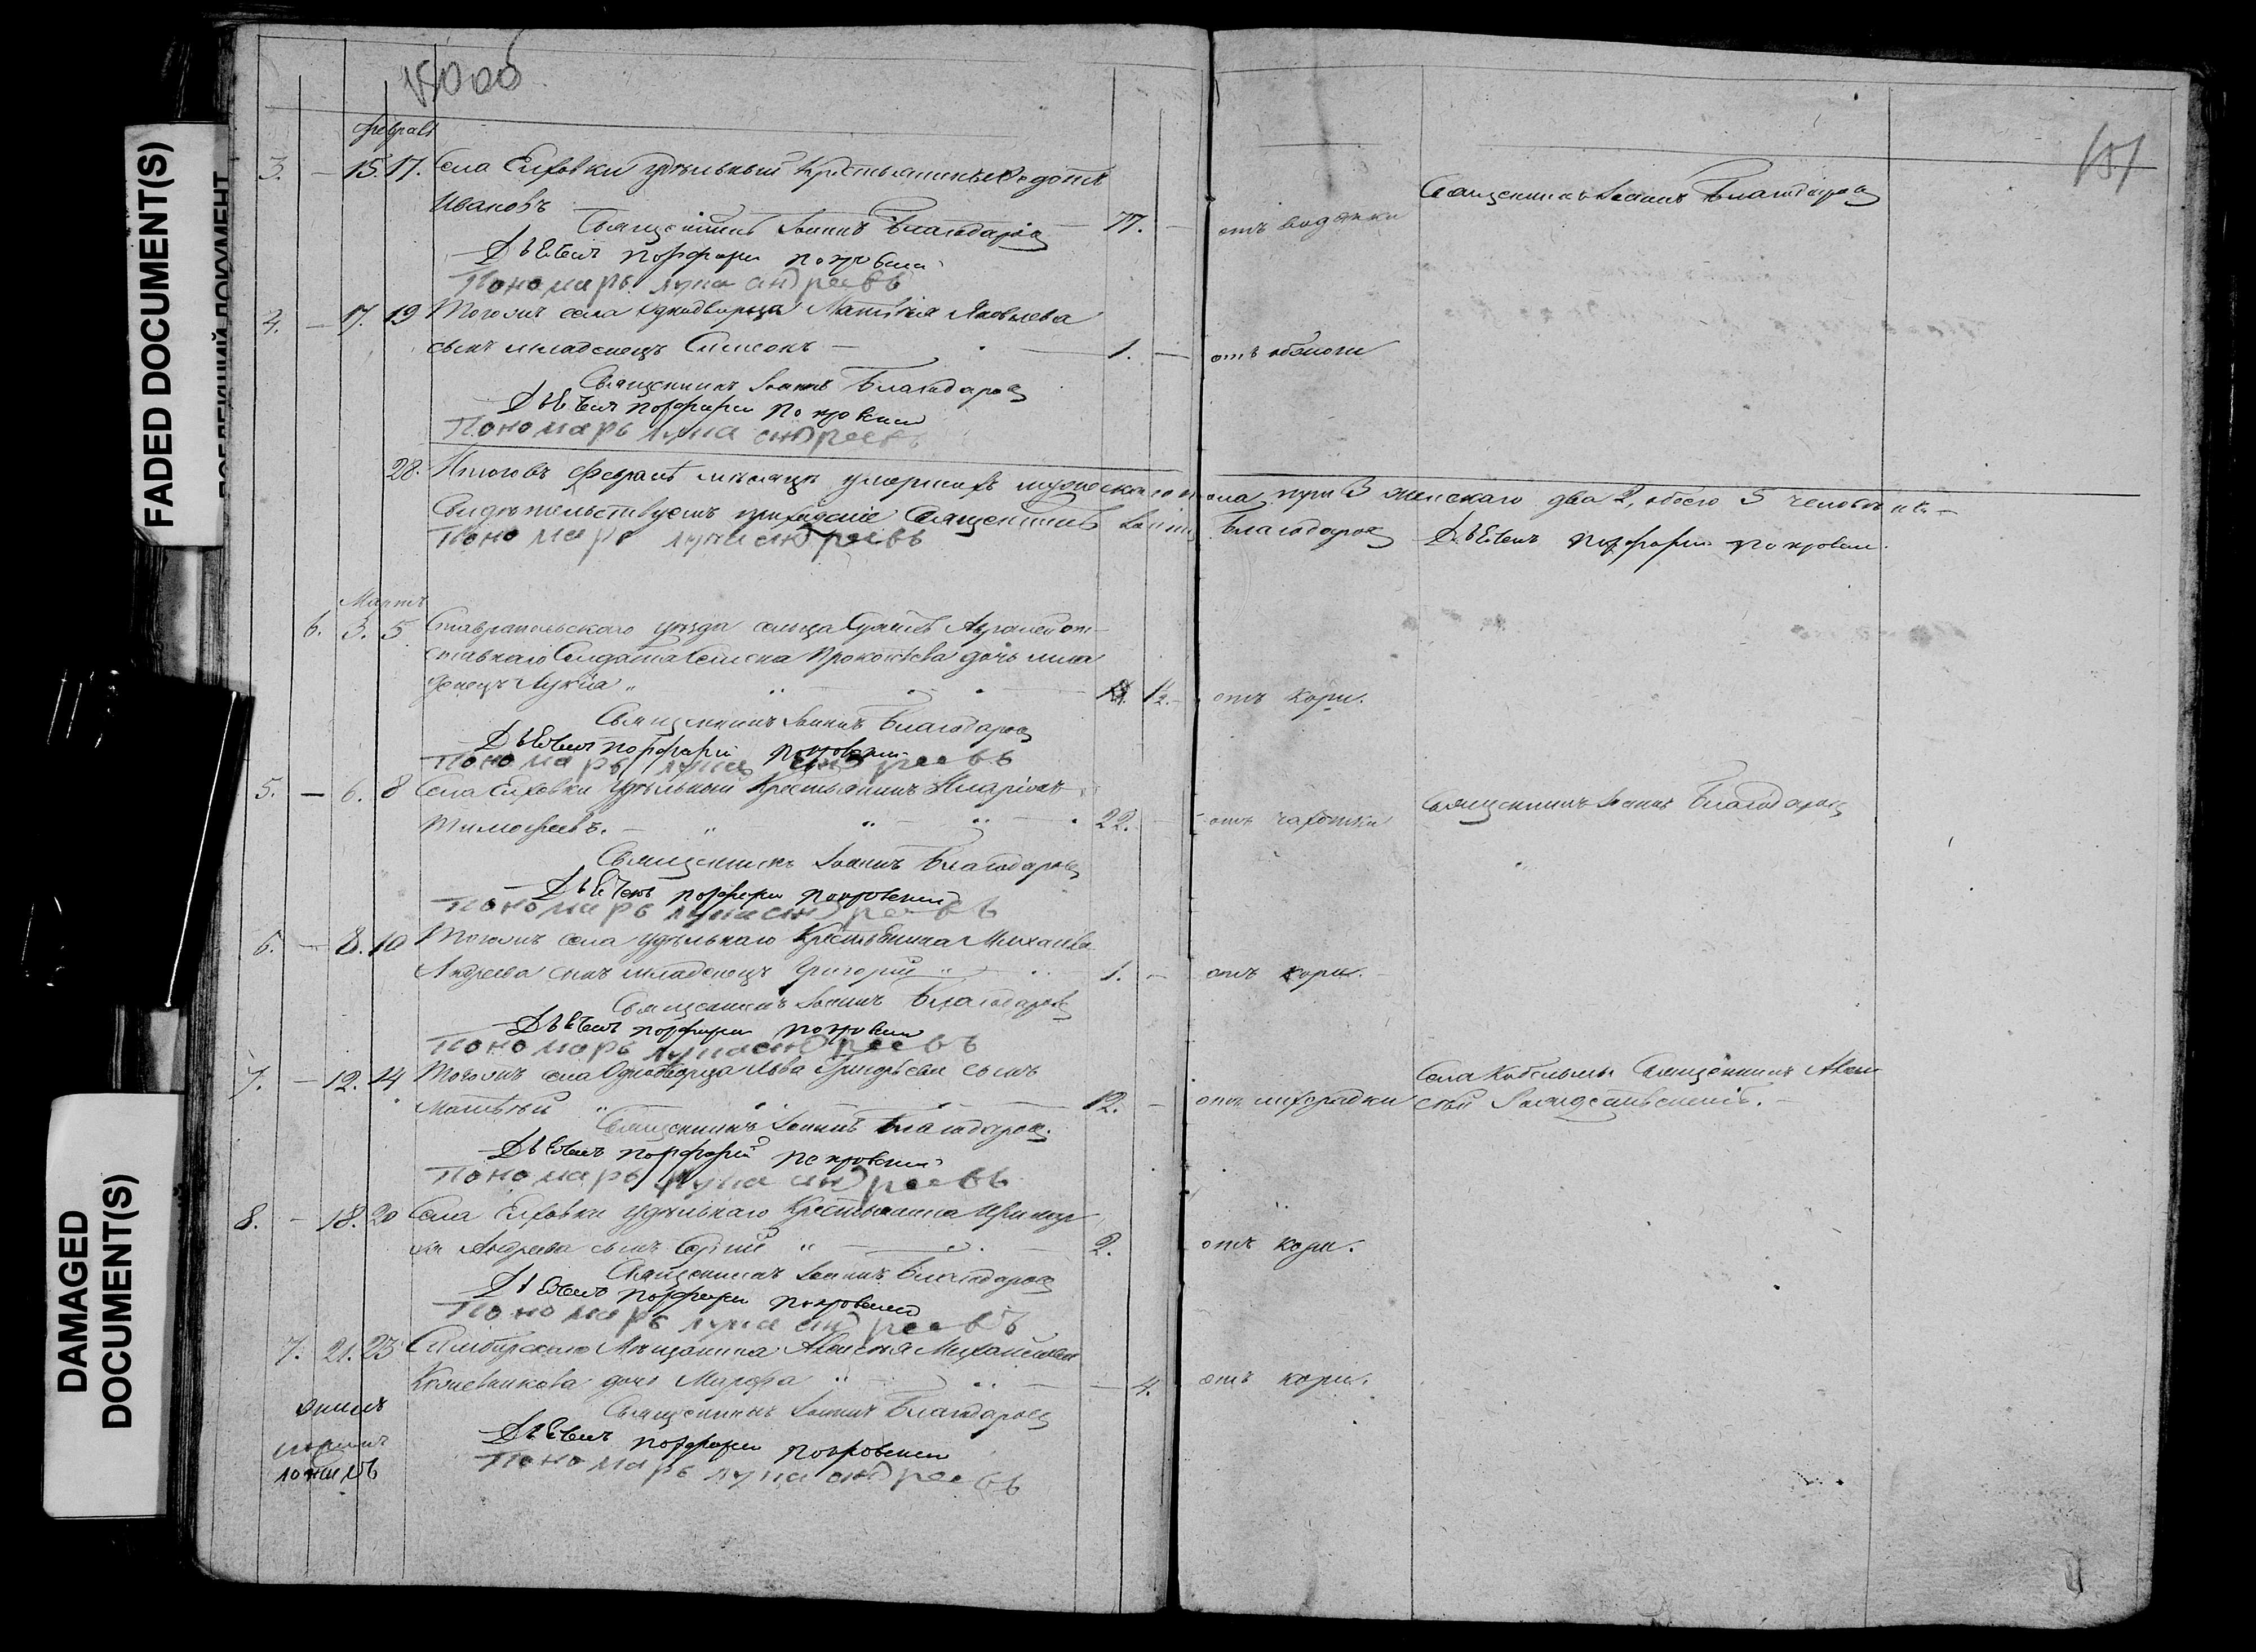 FADED DOCUMENT(S)
DAMAGED
DOCUMENT(S)
151
февраль
3. — 15. 17. Села Елховки удѣльный Крестьянинъ Ѳедотъ
Ивановъ — 77. — отъ водянки Священникъ Іоаннъ Благодаровъ
Священникъ Іоаннъ Благодаровъ
Дьячекъ Порфирий Покровский
Пономарь Лука Андреевъ
4. — 17. 19 Тогожъ села однодворца Матвѣя Яковлева
сынъ младенецъ Симеонъ — 1. — отъ
Священникъ Іоаннъ Благодаровъ
Дьячекъ Порфирий Покровский
Пономарь Лука Андреевъ
28. Итого въ Февралѣ мѣсяцѣ умершихъ мужескаго пола три 3 женскаго два 2, обоего 5 человѣкъ. —
Свидѣтельствуемъ приходские Священникъ Іоаннъ Благодаровъ Дьячекъ Порфирий Покровский
Пономарь Лука Андреевъ
Мартъ
6. 3. 5 Ставропольскаго уѣзда сельца от-
ставнаго Солдата Прокофьева дочь мла
денецъ Лукия 1/2. — отъ кори.
Священникъ Іоаннъ Благодаровъ
Дьячекъ Порфирий Покровский
Пономарь Лука Андреевъ
5. — 6. 8 Села Елховки Удѣльный Крестьянинъ Иларіонъ
Тимофеевъ. — 22. — отъ чахотки Священникъ Іоаннъ Благодаровъ
Священникъ Іоаннъ Благодаровъ
Дьячекъ Порфирий Покровский
Пономарь Лука Андреевъ
6. — 8. 10 Тогожъ села удѣльнаго Крестьянина Михаила
Андреева сынъ младенецъ Григорий 1. — отъ кори.
Священникъ Іоаннъ Благодаровъ
Дьячекъ Порфирий Покровский
Пономарь Лука Андреевъ
7. — 12. 14 Тогожъ села Однодворца Льва Григорьева сынъ
Матвѣй — 12. — отъ лихорадки Села Кобельмы Священникъ Алек
сѣй Рождественскій. —
Священникъ Іоаннъ Благодаровъ.
Дьячекъ Порфирий Покровский
Пономарь Лука Андреевъ
8. — 18. 20 Села Елховки Удѣльнаго Крестьянина
Андреева сынъ Сергий — 2. отъ кори.
Священникъ Іоаннъ Благодаровъ
Дьячекъ Порфирий Покровский
Пономарь Лука Андреевъ
7. 21. 23 Симбирскаго Мѣщанина Алексѣя Михайлова
Кожевникова дочь Марфа — 4. отъ кори.
Священникъ Іоаннъ Благодаровъ
Дьячекъ Порфирий Покровский
Пономарь Лука Андреевъ